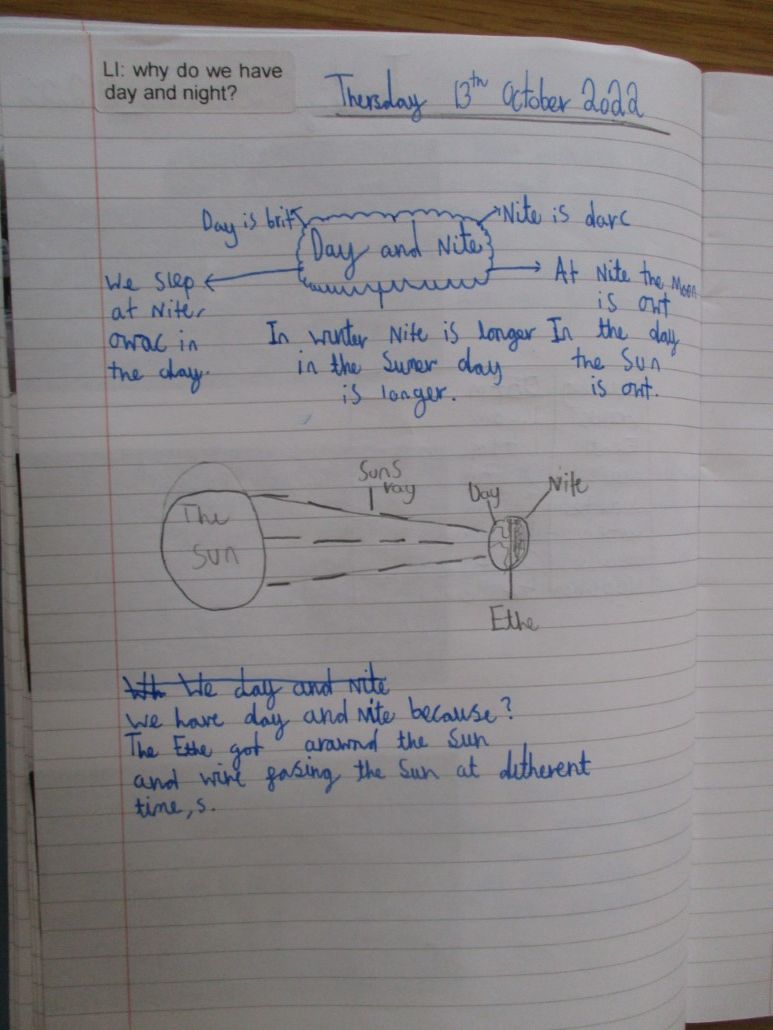 LI: why do we have
day and night?
Thersday 13th October 2022
Day is brit
Nite is darc
Day and Nite
We slep
at Nite,
owac in
the day.
In winter Nite is longer
in the Sumer day
is longer.
At Nite the Moon
is owt
In the day
the Sun
is owt.
The
Sun
Suns
ray
Day
Nite
Ethe
Wh We day and Nite
We have day and Nite because?
The Ethe got arawnd the Sun
and wire fasing the Sun at ditherent
time,s.